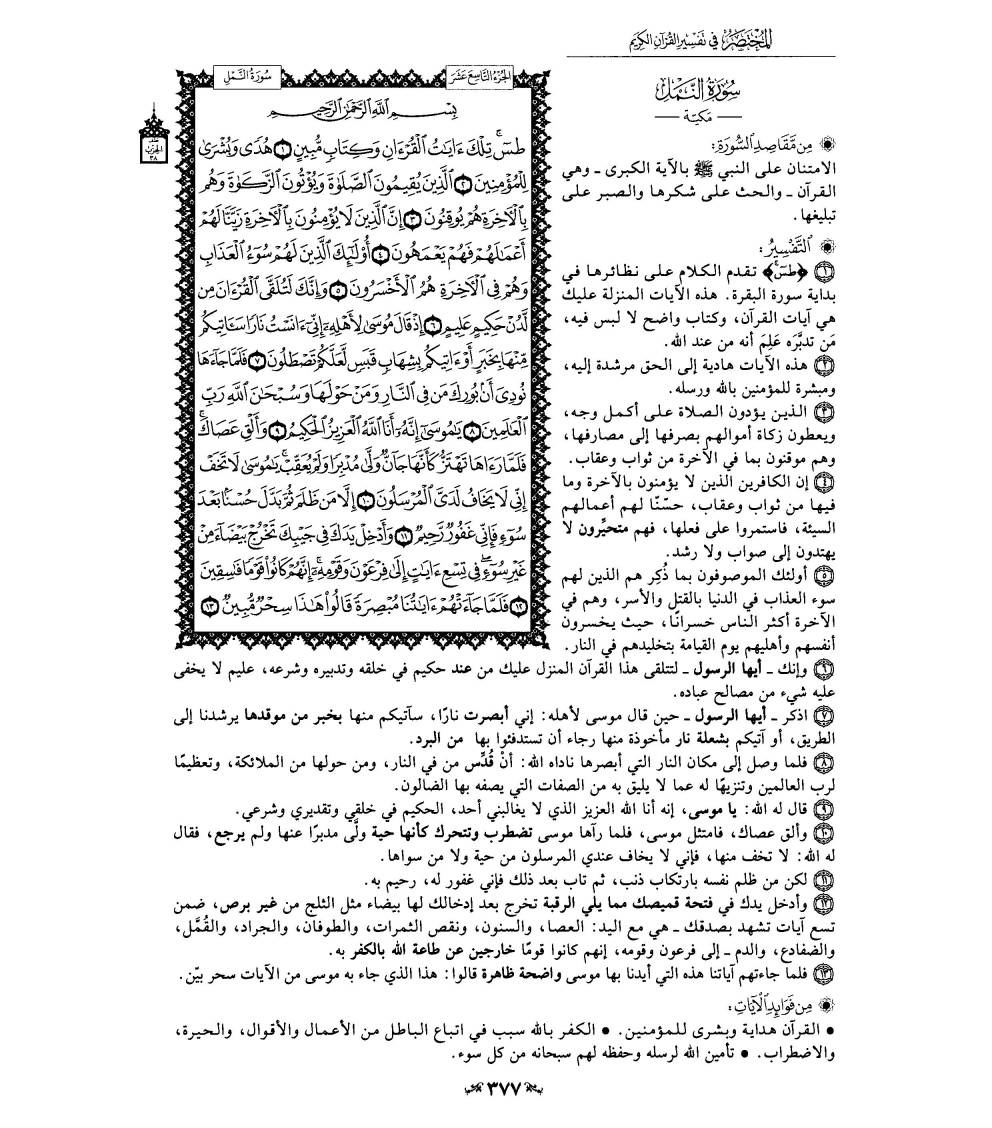 المختصر في تفسير القرآن الكريم
سُورَةُ النَّمْل
الجُزءُ التَّاسِعَ عَشَرَ
بِسْمِ اللَّهِ الرَّحْمَٰنِ الرَّحِيمِ
طسٓۚ تِلْكَ ءَايَٰتُ الْقُرْءَانِ وَكِتَابٍ مُّبِينٍ ١ هُدًى وَبُشْرَىٰ
لِلْمُؤْمِنِينَ ٢ الَّذِينَ يُقِيمُونَ الصَّلَوٰةَ وَيُؤْتُونَ الزَّكَوٰةَ وَهُم
بِالْءَاخِرَةِ هُمْ يُوقِنُونَ ٣ إِنَّ الَّذِينَ لَا يُؤْمِنُونَ بِالْءَاخِرَةِ زَيَّنَّا لَهُمْ
أَعْمَٰلَهُمْ فَهُمْ يَعْمَهُونَ ٤ أُوْلَٰٓئِكَ الَّذِينَ لَهُمْ سُوٓءُ الْعَذَابِ
وَهُمْ فِي الْءَاخِرَةِ هُمُ الْأَخْسَرُونَ ٥ وَإِنَّكَ لَتُلَقَّى الْقُرْءَانَ مِن
لَّدُنْ حَكِيمٍ عَلِيمٍ ٦ إِذْ قَالَ مُوسَىٰ لِأَهْلِهِۦٓ إِنِّيٓ ءَانَسْتُ نَارًا سَـَٔاتِيكُم
مِّنْهَا بِخَبَرٍ أَوْ ءَاتِيكُم بِشِهَابٍ قَبَسٍ لَّعَلَّكُمْ تَصْطَلُونَ ٧ فَلَمَّا جَآءَهَا
نُودِيَ أَنۢ بُورِكَ مَن فِي النَّارِ وَمَنْ حَوْلَهَا وَسُبْحَٰنَ اللَّهِ رَبِّ
الْعَٰلَمِينَ ٨ يَٰمُوسَىٰٓ إِنَّهُۥٓ أَنَا اللَّهُ الْعَزِيزُ الْحَكِيمُ ٩ وَأَلْقِ عَصَاكَۚ
فَلَمَّا رَءَاهَا تَهْتَزُّ كَأَنَّهَا جَآنٌّ وَلَّىٰ مُدْبِرًا وَلَمْ يُعَقِّبْۚ يَٰمُوسَىٰ لَا تَخَفْ
إِنِّي لَا يَخَافُ لَدَيَّ الْمُرْسَلُونَ ١٠ إِلَّا مَن ظَلَمَ ثُمَّ بَدَّلَ حُسْنًۢا بَعْدَ
سُوٓءٍ فَإِنِّي غَفُورٌ رَّحِيمٌ ١١ وَأَدْخِلْ يَدَكَ فِي جَيْبِكَ تَخْرُجْ بَيْضَآءَ مِنْ
غَيْرِ سُوٓءٍۖ فِي تِسْعِ ءَايَٰتٍ إِلَىٰ فِرْعَوْنَ وَقَوْمِهِۦٓۚ إِنَّهُمْ كَانُواْ قَوْمًا فَٰسِقِينَ
١٢ فَلَمَّا جَآءَتْهُمْ ءَايَٰتُنَا مُبْصِرَةً قَالُواْ هَٰذَا سِحْرٌ مُّبِينٌ ١٣
الحزب
٣٨
سُورَةُ النَّمْلِ
— مَكيّة —
مِن مَّقَاصِدِ السُّورَةِ:
الامتنان على النبي ﷺ بالآية الكبرى ـ وهي
القرآن ـ والحث على شكرها والصبر على
تبليغها.
التَّفْسِيرُ:
١ ﴿طسٓۚ﴾ تقدم الكلام على نظائرها في
بداية سورة البقرة. هذه الآيات المنزلة عليك
هي آيات القرآن، وكتاب واضح لا لبس فيه،
مَن تدبَّرَه عَلِمَ أنه من عند الله.
٢ هذه الآيات هادية إلى الحق مرشدة إليه،
ومبشرة للمؤمنين بالله ورسله.
٣ الذين يؤدون الصلاة على أكمل وجه،
ويعطون زكاة أموالهم بصرفها إلى مصارفها،
وهم موقنون بما في الآخرة من ثواب وعقاب.
٤ إن الكافرين الذين لا يؤمنون بالآخرة وما
فيها من ثواب وعقاب، حسّنّا لهم أعمالهم
السيئة، فاستمروا على فعلها، فهم متحيِّرون لا
يهتدون إلى صواب ولا رشد.
٥ أولئك الموصوفون بما ذُكِر هم الذين لهم
سوء العذاب في الدنيا بالقتل والأسر، وهم في
الآخرة أكثر الناس خسرانًا، حيث يخسرون
أنفسهم وأهليهم يوم القيامة بتخليدهم في النار.
٦ وإنك ـ أيها الرسول ـ لتتلقى هذا القرآن المنزل عليك من عند حكيم في خلقه وتدبيره وشرعه، عليم لا يخفى
عليه شيء من مصالح عباده.
٧ اذكر ـ أيها الرسول ـ حين قال موسى لأهله: إني أبصرت نارًا، سآتيكم منها بخبر من موقدها يرشدنا إلى
الطريق، أو آتيكم بشعلة نار مأخوذة منها رجاء أن تستدفئوا بها من البرد.
٨ فلما وصل إلى مكان النار التي أبصرها ناداه الله: أنْ قُدِّس من في النار، ومن حولها من الملائكة، وتعظيمًا
لرب العالمين وتنزيهًا له عما لا يليق به من الصفات التي يصفه بها الضالون.
٩ قال له الله: يا موسى، إنه أنا الله العزيز الذي لا يغالبني أحد، الحكيم في خلقي وتقديري وشرعي.
١٠ وألق عصاك، فامتثل موسى، فلما رآها موسى تضطرب وتتحرك كأنها حية ولَّى مدبرًا عنها ولم يرجع، فقال
له الله: لا تخف منها، فإني لا يخاف عندي المرسلون من حية ولا من سواها.
١١ لكن من ظلم نفسه بارتكاب ذنب، ثم تاب بعد ذلك فإني غفور له، رحيم به.
١٢ وأدخل يدك في فتحة قميصك مما يلي الرقبة تخرج بعد إدخالك لها بيضاء مثل الثلج من غير برص، ضمن
تسع آيات تشهد بصدقك ـ هي مع اليد: العصا، والسنون، ونقص الثمرات، والطوفان، والجراد، والقُمَّل،
والضفادع، والدم ـ إلى فرعون وقومه، إنهم كانوا قومًا خارجين عن طاعة الله بالكفر به.
١٣ فلما جاءتهم آياتنا هذه التي أيدنا بها موسى واضحة ظاهرة قالوا: هذا الذي جاء به موسى من الآيات سحر بيّن.
مِن فَوَائِدِ الآيَاتِ:
• القرآن هداية وبشرى للمؤمنين. • الكفر بالله سبب في اتباع الباطل من الأعمال والأقوال، والحيرة،
والاضطراب. • تأمين الله لرسله وحفظه لهم سبحانه من كل سوء.
٣٧٧